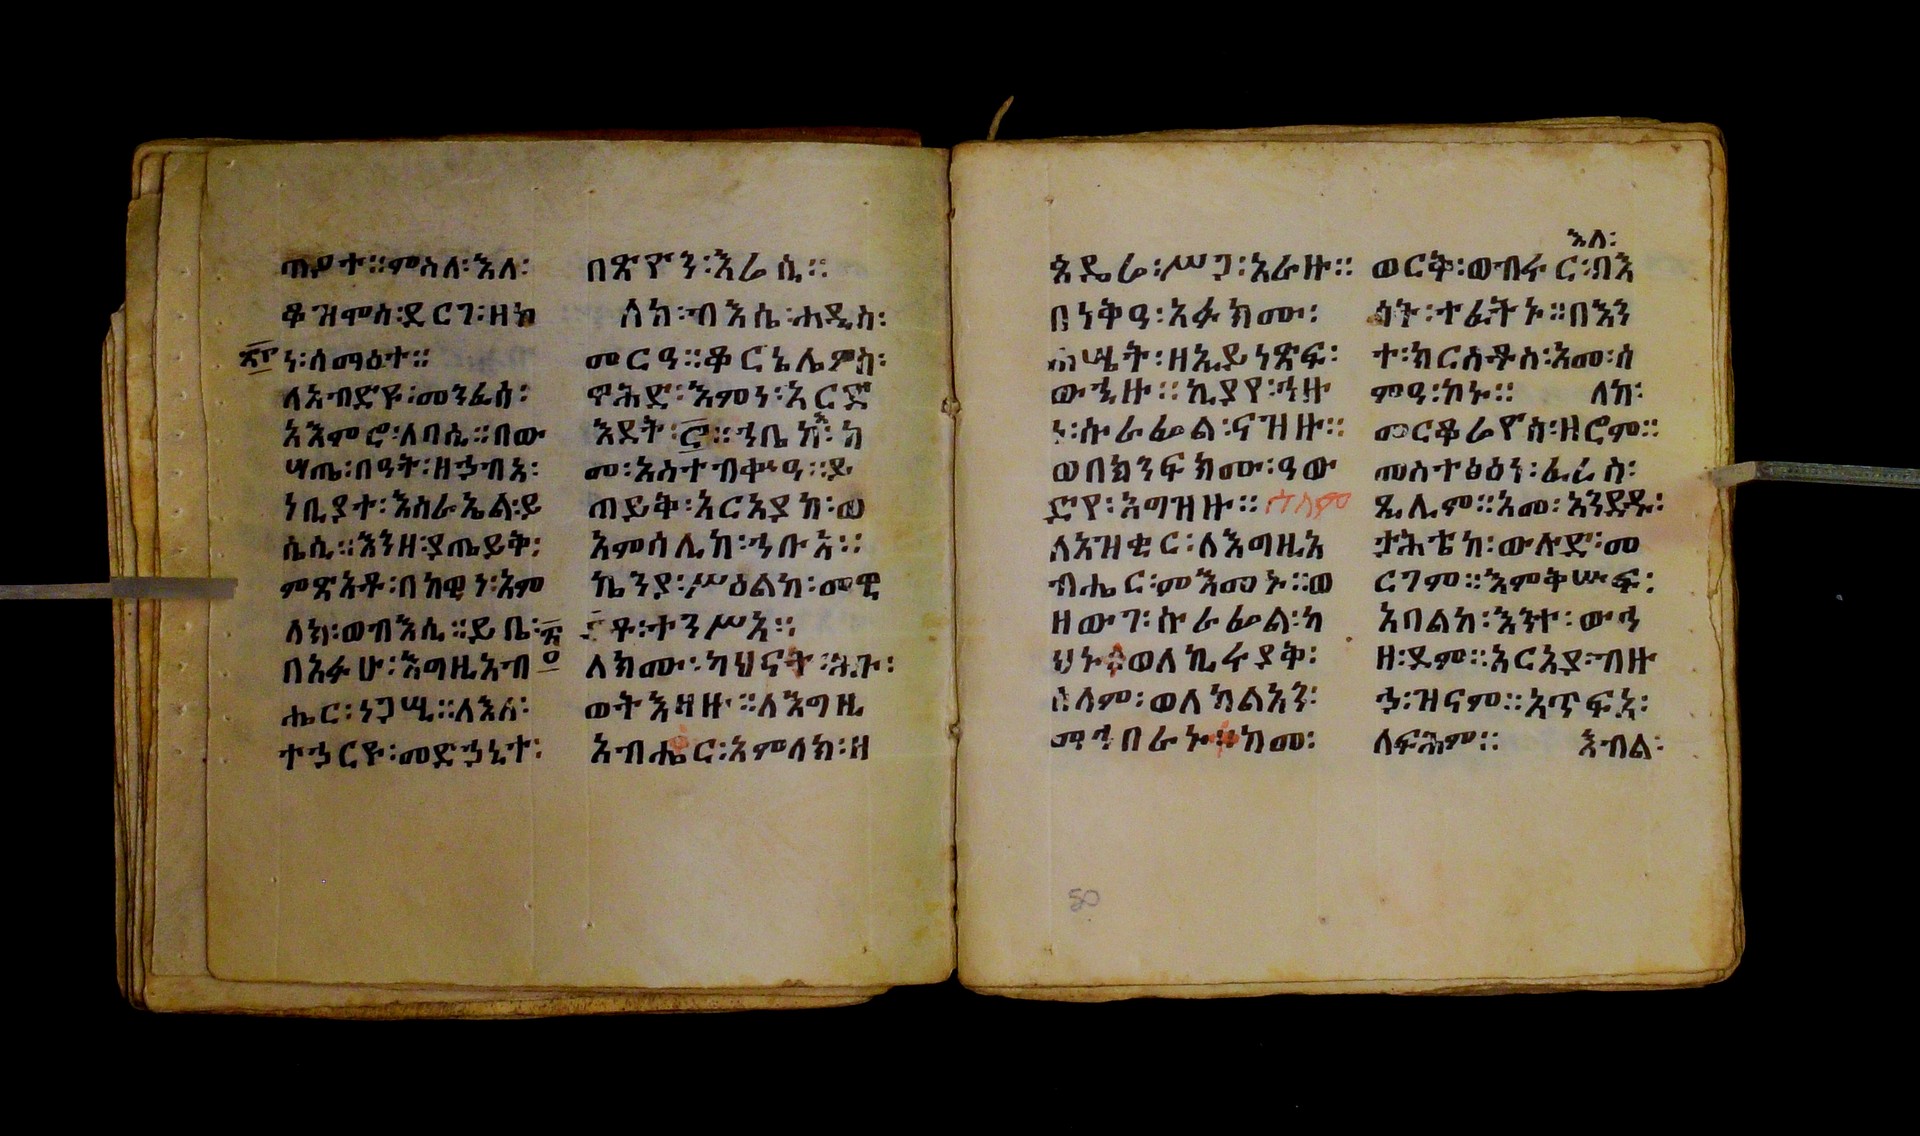 ጣዖተ ። ምስለ ፡ እለ ፡
ቆዝሞስ ፡ ደርገ ፡ ዘከ
ነ ፡ ሰማዕተ ።
ለአብድዩ ፡ መንፈሰ ፡
አእምሮ ፡ ለባሲ ። በው
ሣጤ ፡ በዓት ፡ ዘኃብአ ፡
ነቢያተ ፡ እስራኤል ፡ ይ
ሴሲ ። እንዘ ፡ ያጤይቅ ፡
ምጽአቶ ፡ በከዊነ ፡ አም
ላክ ፡ ወብእሲ ። ይቤ ፡
በአፉሁ ፡ እግዚአብ
ሔር ፡ ነጋሢ ። ለእለ ፡
ተኃርዮ ፡ መድኃኒተ ፡
በጽዮን ፡ እራሲ ።
ለከ ፡ ብእሴ ፡ ሐዲስ ፡
መርዓ ። ቆርኔሌዎስ ፡
ዋሕድ ፡ እምነ ፡ አርድ
እደት ፡ ፸ ። ኀቤከ ፡ ከ
መ ፡ አስተብቍዓ ። ይ
ጠይቅ ፡ አርአያከ ፡ ወ
አምሳሊከ ፡ ኀቡአ ።
ኬንያ ፡ ሥዕልከ ፡ መዊ
ቶ ፡ ተንሥአ ።
ለክሙ ፡ ካህናት ፡ ሕጉ ፡
ወትእዛዙ ። ለእግዚ
አብሔር ፡ አምላክ ፡ ዘ
እለ ፡
እዴሬ ፡ ሥጋ ፡ አራዙ ።
በነቅዓ ፡ አፉክሙ ፡
ሐሤት ፡ ዘኢይነጽፍ ፡
ውኂዙ ። ኪያየ ፡ ኀዙ
ነ ፡ ሱራፌል ፡ ናዝዙ ።
ወበክንፍክሙ ፡ ዓው
ድየ ፡ አግዝዙ ። ሰላም
ለአዝቂር ፡ ለእግዚአ
ብሔር ፡ ምእመኑ ። ወ
ዘውገ ፡ ሱራፌል ፡ ካ
ህኑ ። ወለኪራያቅ ፡
ሰላም ፡ ወለካልአን ፡
ማኀበራኑ ። ከመ ፡
ወርቅ ፡ ወብሩር ፡ በእ
ሳት ፡ ተፈትኑ ። በእን
ተ ፡ ክርስቶስ ፡ እመ ፡ ሰ
ምዓ ፡ ኮኑ ። ለከ ፡
መርቆሬዎስ ፡ ዘሮም ።
መስተፅዕነ ፡ ፈረስ ፡
ጺሊም ። አመ ፡ አንደዱ ፡
ታሕቴከ ፡ ውሉደ ፡ መ
ርገም ። እምቅሡፍ ፡
አባልከ ፡ እንተ ፡ ውኅ
ዘ ፡ ደም ። አርአያ ፡ ብዙ
ኃ ፡ ዝናም ። አጥፍአ ፡
ለፍሕም ። እብል ፡
50